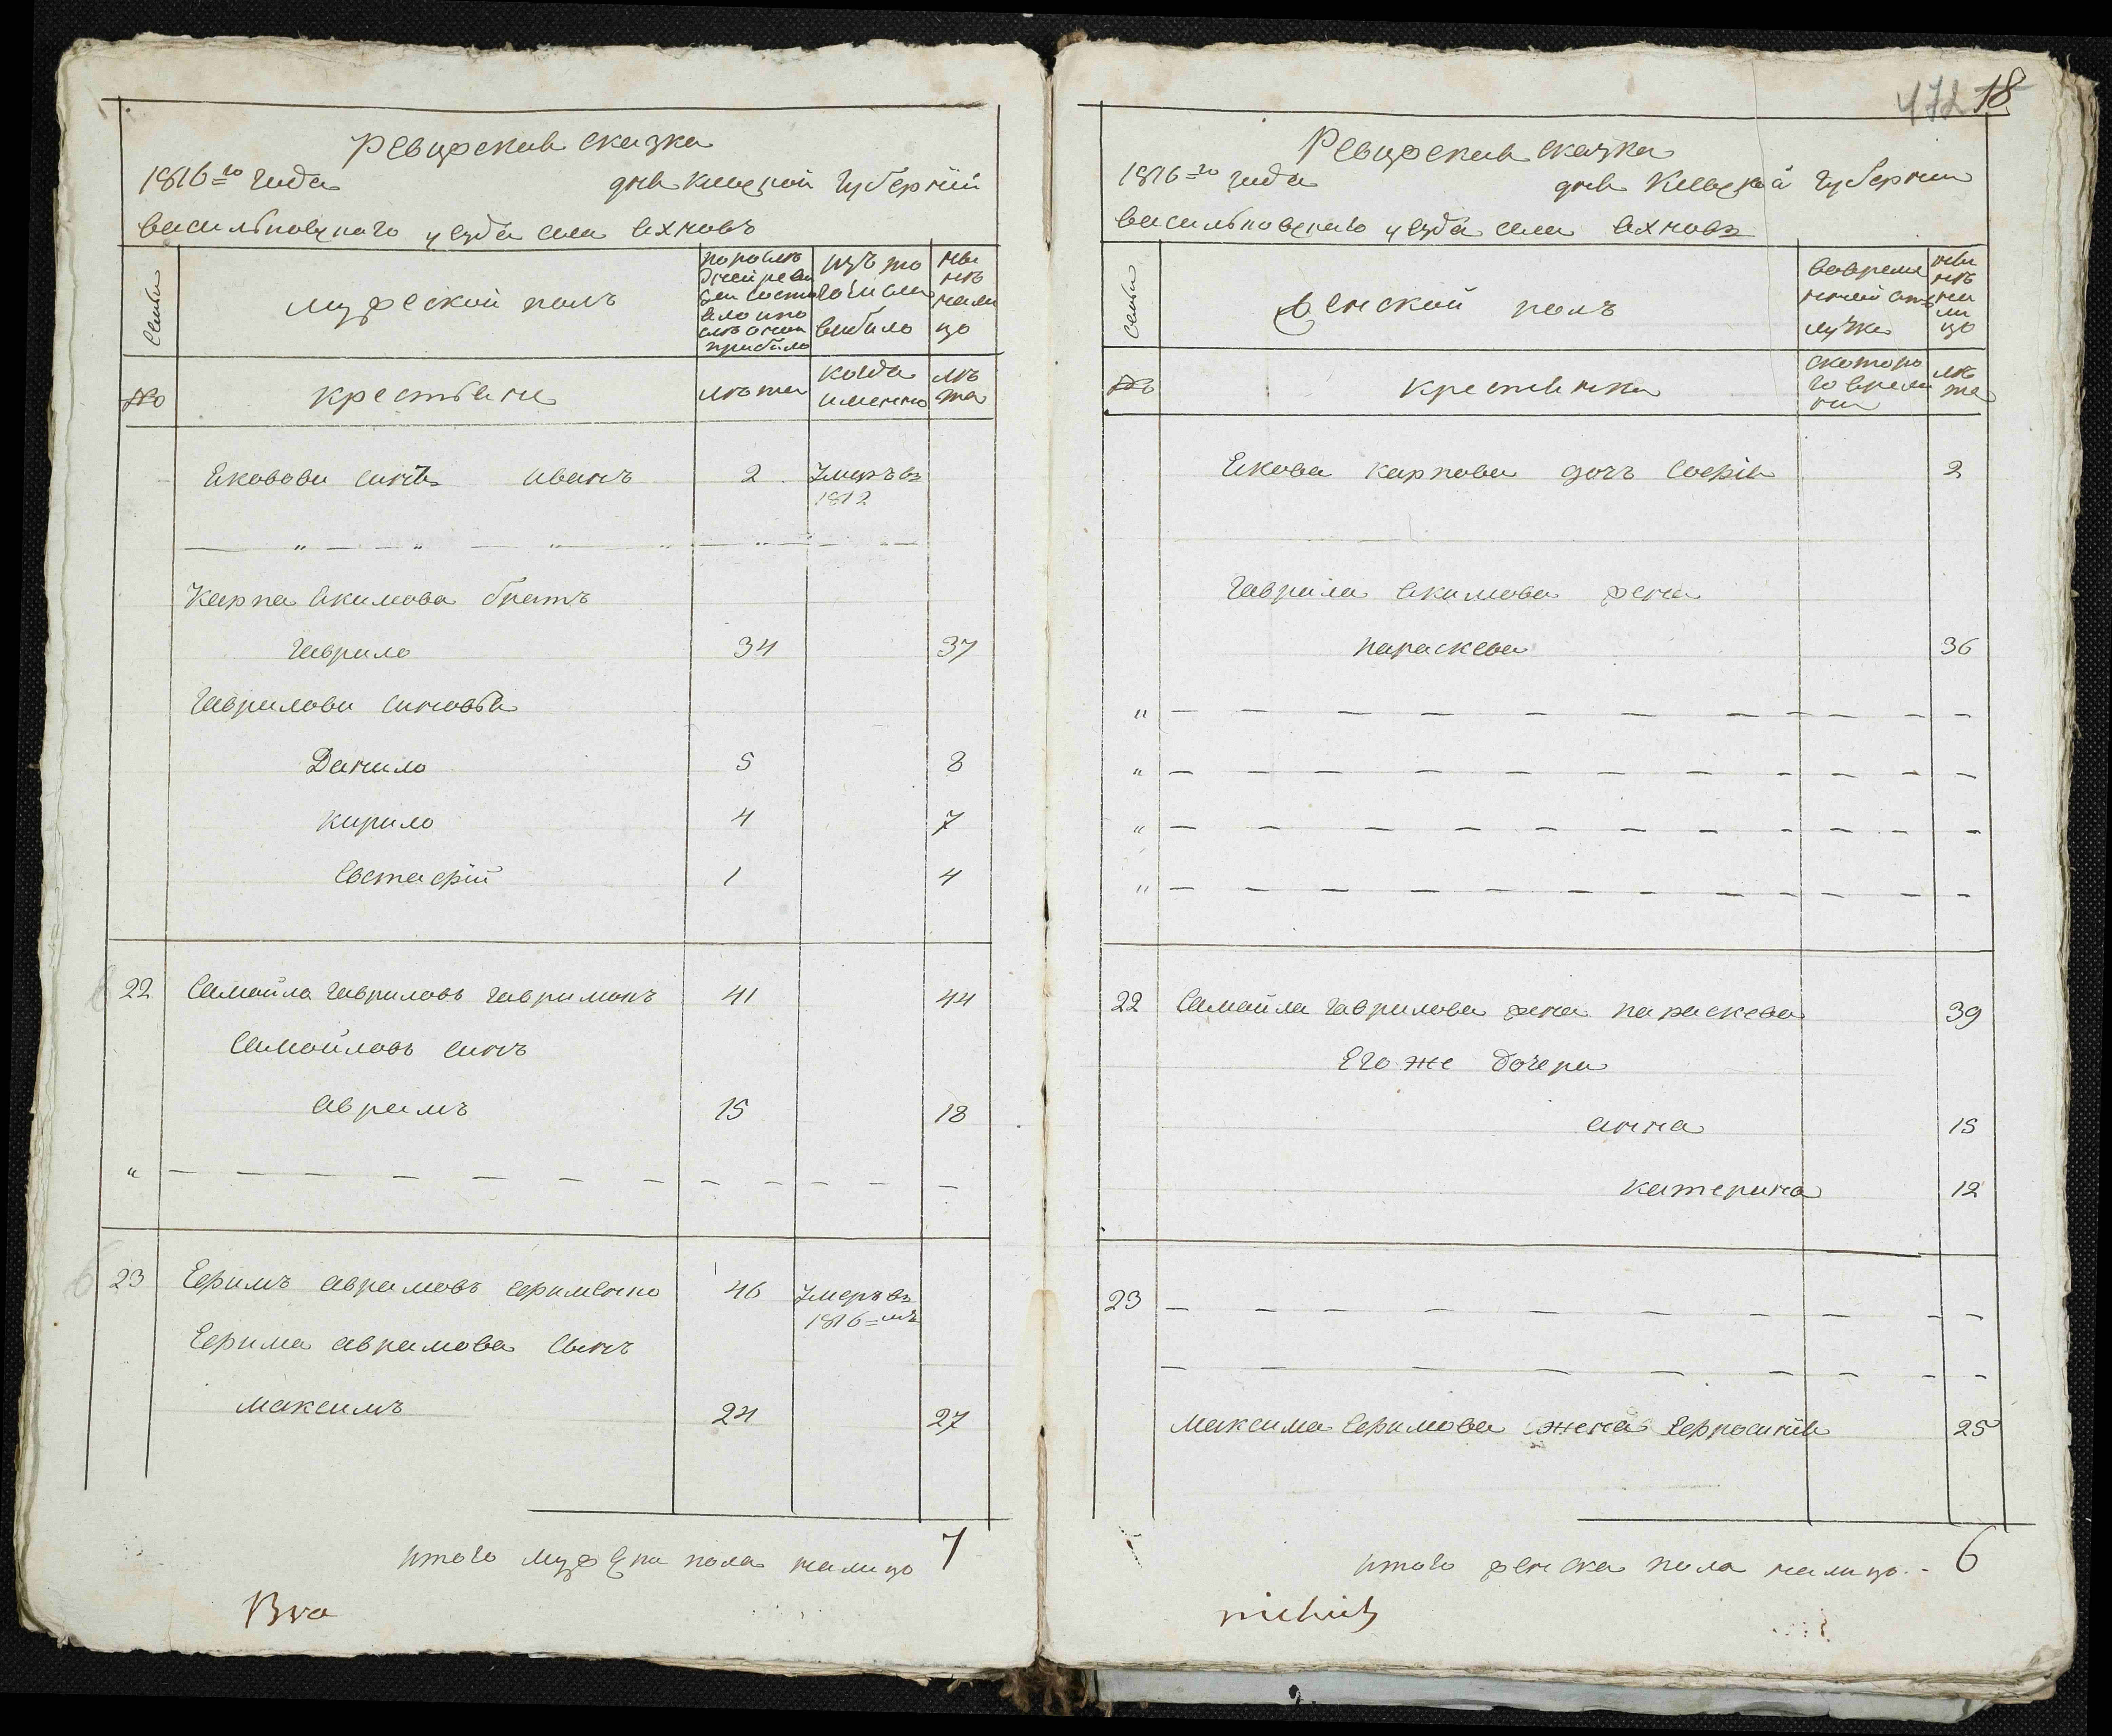 Ревизская сказка
1816=го года дня Киевской Губернии
васильковскаго уезда села Яхновъ
семьи
мужеской полъ
по послѣ
дней реви
зии состо
яло и по
слѣ оной
прибыло
изъ то
го числа
выбыло
ныне
нѣ
нали
цо
№
крестьяне
лѣта
когда
имянно
лѣ
та
Яковови синъ иванъ 2 Умеръ въ
1812
Карпа Акимова братъ
Гаврило 34 37
Гаврилови синовья
Данило 5 8
кирило 4 7
Евстафій 1 4
22 Самойла Гавриловъ гавримокъ 41 44
Самойловъ синъ
аврамъ 15 18
23 Ефимъ аврамовъ ефименко 46 Умеръ въ
1816=мъ
Ефима аврамова Сынъ
максимъ 24 27
итого мужеска пола налицо 7
472 18
Ревизская сказка
1816=го года дня Киевской Губернии
васильковскаго уезда села Яхновъ
семьи
Женской полъ
вовремя
нной от
лучке
ныне
нѣ
на
ли
цо
№
крестьянки
с которо
го време
ни
лѣ
та
Якова карпова дочъ Софія 2
Гаврила Акимова жена
параскева 36
22 Самойла Гаврилова жена параскева 39
Его же дочери
анна 15
катерина 12
23
максима Ефимова жена Ефросинія 25
итого женска пола налицо 6